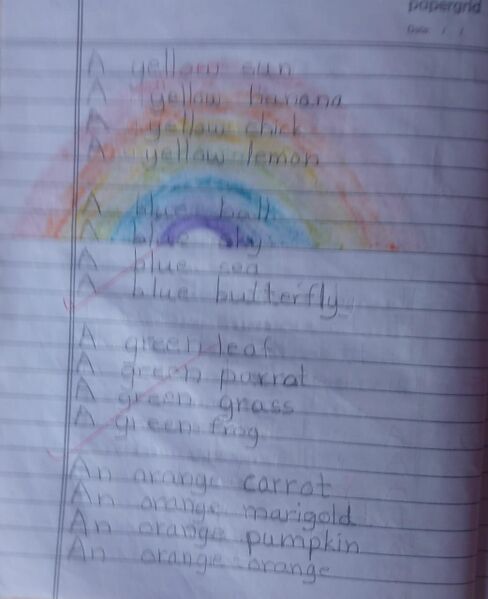 papergrid
Date: / /
A yellow sun
A yellow banana
A yellow chick
A yellow lemon
A blue ball
A blue sky
A blue sea
A blue butterfly
A green leaf
A green parrot
A green grass
A green frog
An orange carrot
An orange marigold
An orange pumpkin
An orange orange